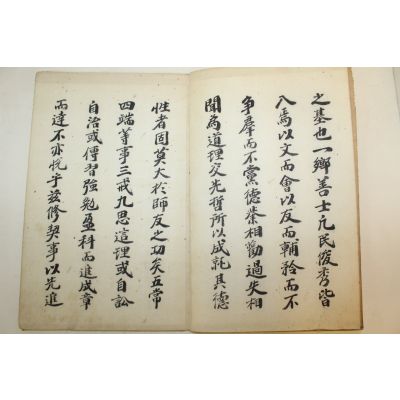 之基也一鄕善士凡民俊秀皆
入焉以文而會以友而輔矜而不
争羣而不黨德業相勸過失相
聞爲道理交先哲所以成就其德
性者固莫大於師友之功矣五常
四端等事三戒九思這理或自訟
自治或傳習強勉盈科而進成章
而達不亦悅乎玆修契事以先進